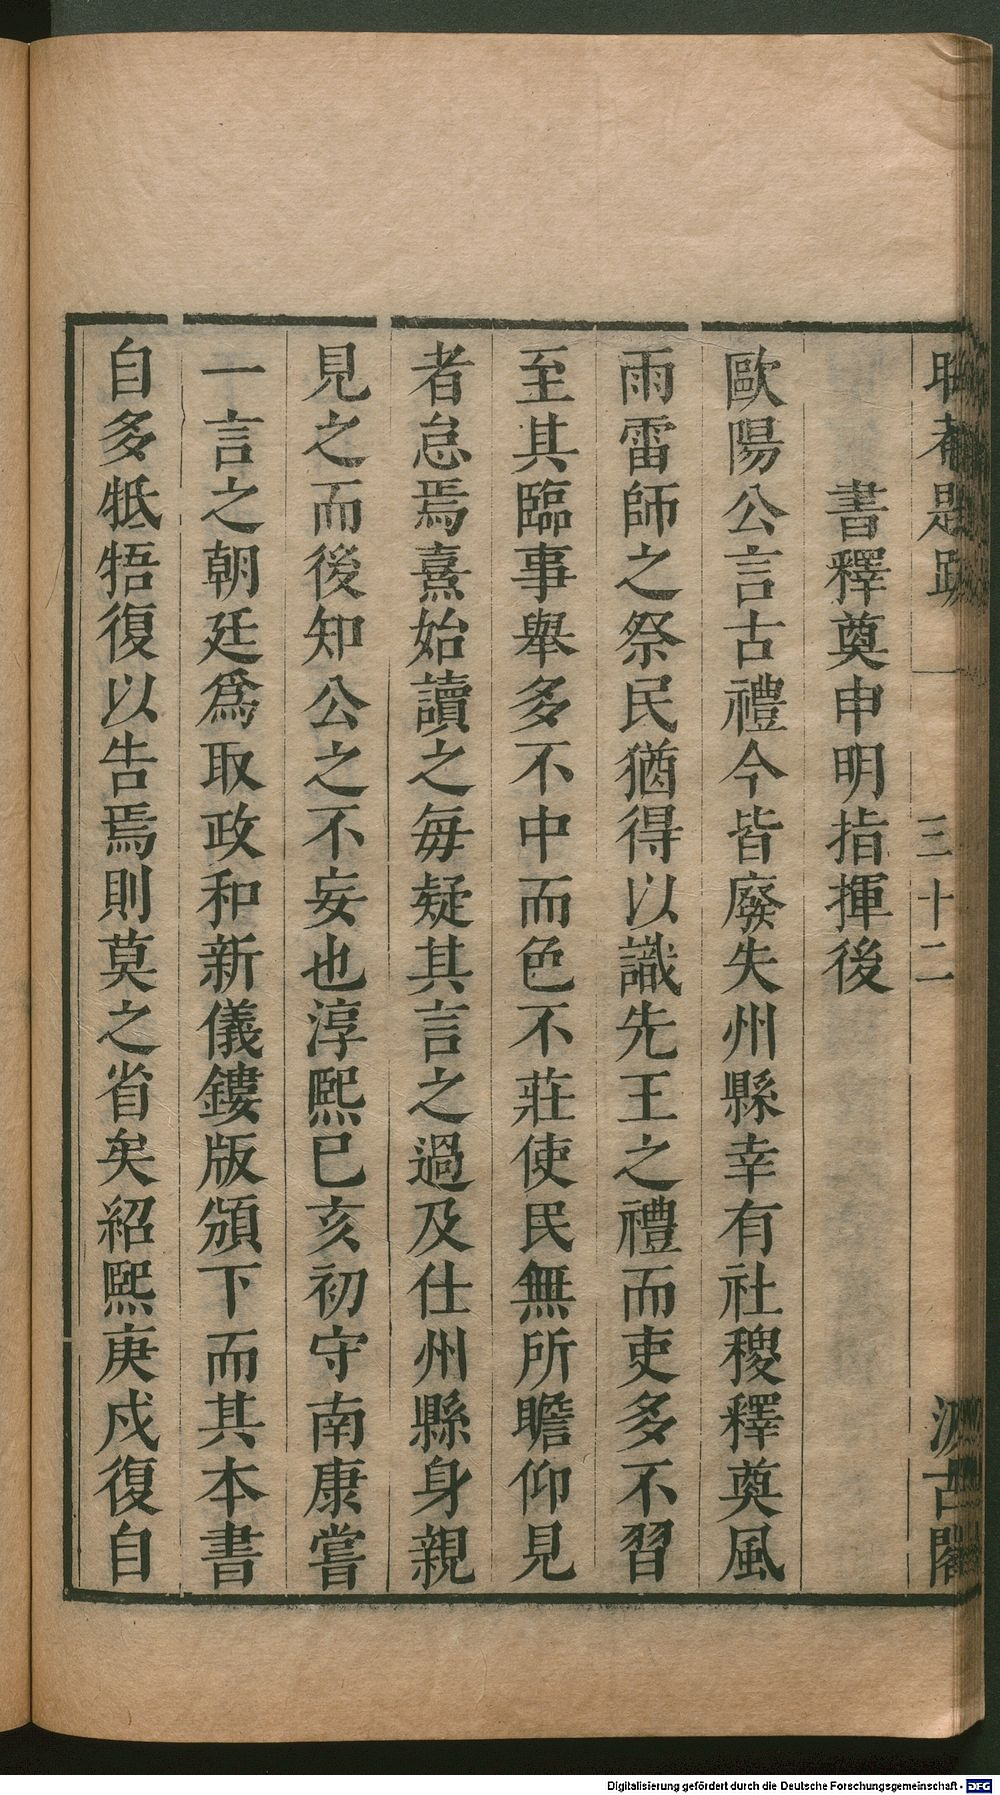 晦菴題跋 一 三十二 汲古閣
書釋奠申明指揮後
歐陽公言古禮今皆廢失州縣幸有社稷釋奠風
雨雷師之祭民猶得以識先王之禮而吏多不習
至其臨事舉多不中而色不莊使民無所瞻仰見
者怠焉熹始讀之每疑其言之過及仕州縣身親
見之而後知公之不妄也淳熙己亥初守南康嘗
一言之朝廷爲取政和新儀鏤版頒下而其本書
自多牴牾復以告焉則莫之省矣紹熙庚戌復自
Digitalisierung gefördert durch die Deutsche Forschungsgemeinschaft - DFG